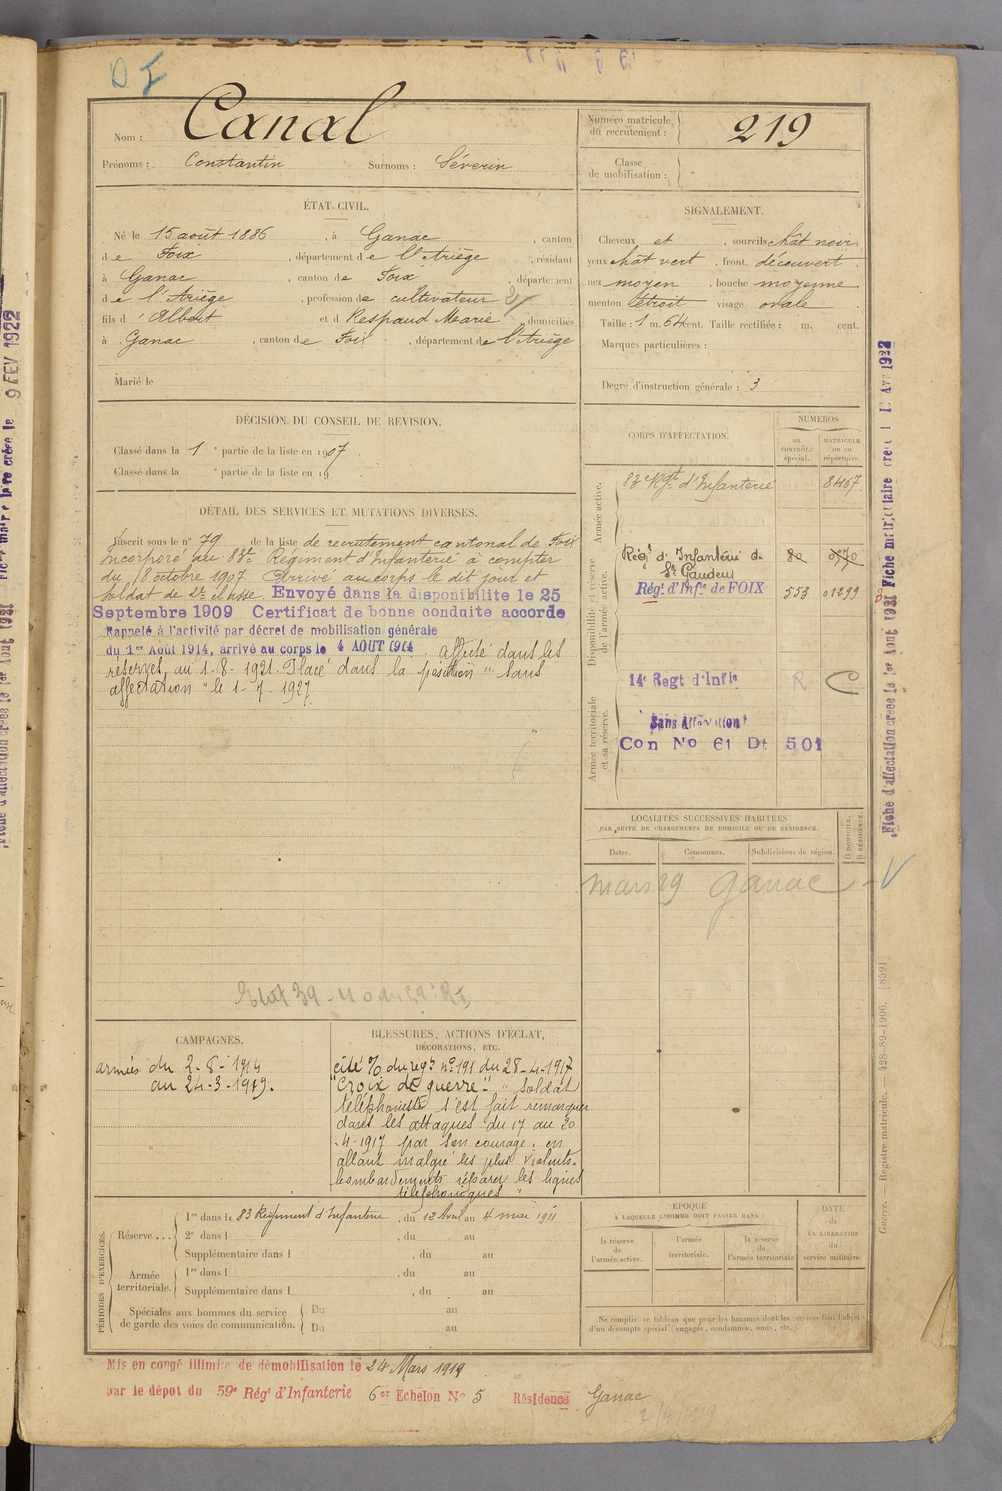 Nom : Canal
Prénoms : Constantin Surnoms : Séverin
Numéro matricule du recrutement : 219
Classe de mobilisation :
ÉTAT CIVIL.
Né le 15 août 1886, à Ganac, canton
de Foix, département de l'Ariège, résidant
à Ganac, canton de Foix, département
de l'Ariège, profession de cultivateur
fils d'Albert et d Respaud Marie, domiciliés
à Ganac, canton de Foix, département de l'Ariège
Marié le
SIGNALEMENT.
Cheveux et, sourcils chât noir
yeux chât vert, front découvert
nez moyen, bouche moyenne
menton étroit visage ovale
Taille : 1 m. 64 cent. Taille rectifiée : m. cent.
Marques particulières :
Degré d'instruction générale : 3
DÉCISION DU CONSEIL DE REVISION.
Classé dans la 1e partie de la liste en 1907.
Classé dans la e partie de la liste en 19
DÉTAIL DES SERVICES ET MUTATIONS DIVERSES.
Inscrit sous le n° 79 de la liste de recrutement cantonal de Foix
Incorporé au 83e Régiment d'Infanterie à compter
du 8 octobre 1907. Arrivé au corps le dit jour et
soldat de 2e classe. Envoyé dans la disponibilité le 25
Septembre 1909 Certificat de bonne conduite accordé
Rappelé à l'activité par décret de mobilisation générale
du 1er Août 1914, arrivé au corps le 4 AOUT 1914. affecté dans les
réserves au 1-8-1921. Placé dans la position "sans
affectation" le 1-7-1927
CORPS D'AFFECTATION.
NUMÉROS
au CONTRÔLE spécial.
MATRICULE ou au répertoire.
Armée active.
83e Rgt d'Infanterie 8467
Disponibilité et réserve de l'armée active.
Régt d'Infanterie de St Gaudens 80
Régt d'Infie de FOIX 553 01299
Armée territoriale et sa réserve.
14e Regt d'Infie R C
Sans Affectation
Con No 61 Dt 501
LOCALITÉS SUCCESSIVES HABITÉES
PAR SUITE DE CHANGEMENTS DE DOMICILE OU DE RÉSIDENCE.
Dates. Communes. Subdivisions de région. D DOMICILE. R RÉSIDENCE.
mars 29 Ganac
CAMPAGNES.
armées du 2-8-1914
au 24-3-1919.
BLESSURES, ACTIONS D'ÉCLAT,
DÉCORATIONS, ETC.
cité % du régt no 198 du 28-4-1917
"Croix de guerre" "Soldat
téléphoniste s'est fait remarquer
dans les attaques du 17 au 20
-4-1917 par son courage en
allant malgré les plus violents
bombardements réparer les lignes
téléphoniques"
PÉRIODES D'EXERCICES.
Réserve...
1re dans le 83 Régiment d'Infanterie, du 12 Avril au 4 mai 1911
2e dans l, du au
Supplémentaire dans l, du au
Armée territoriale.
1re dans l, du au
Supplémentaire dans l, du au
Spéciales aux hommes du service de garde des voies de communication.
Du au
Du au
ÉPOQUE
À LAQUELLE L'HOMME DOIT PASSER DANS :
la réserve de l'armée active.
l'armée territoriale.
la réserve de l'armée territoriale
DATE de LA LIBÉRATION du service militaire.
Ne remplir ce tableau que pour les hommes dont les services font l'objet
d'un décompte spécial (engagés, condamnés, omis, etc.
Mis en congé illimité de démobilisation le 24 Mars 1919
par le dépôt du 59e Régt d'Infanterie 6er Echelon No 5 Résidence Ganac
Guerre. — Registre matricule. — 428-89-1906. [18591]
Fiche d'affectation créée le 1er Août 1921 Fiche matriculaire créée l 1 Avr 1922
9 FEV 1922